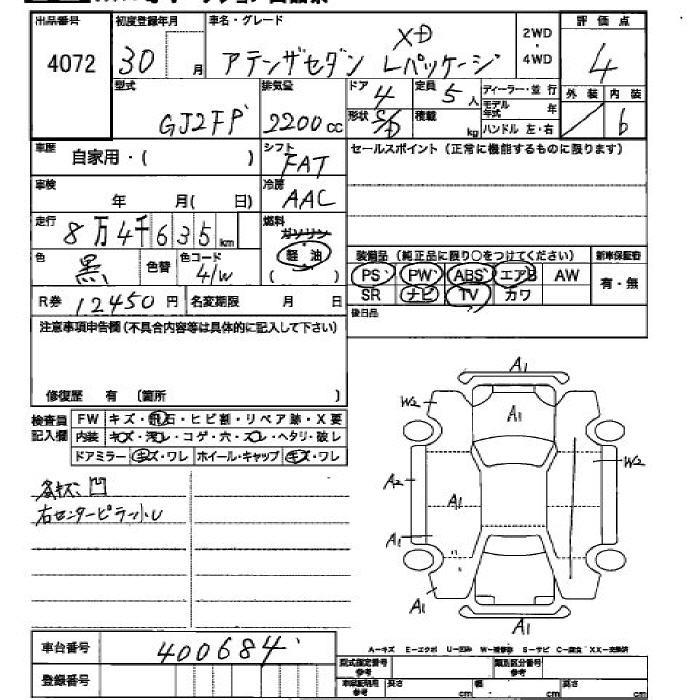 出品番号 初度登録年月 車名・グレード 2WD・4WD 評価点
4072 30 月 アテンザセダン XD Lパッケージ 4
型式 GJ2FP 排気量 2200cc ドア 4 定員 5人 ディーラー・並行 外装 内装
形状 S/D 積載 kg モデル年式 年 ハンドル 左・右 6
車歴 自家用・( ) シフト FAT セールスポイント(正常に機能するものに限ります)
車検 年 月( 日) 冷房 AAC
走行 8万4千635km 燃料 ガソリン 軽油 ( )
色 黒 色替 色コード 41W
装備品 (純正品に限り○をつけてください) 新車保証書
PS PW ABS エアB AW 有・無
SR ナビ TV カワ
R券 12450円 名変期限 月 日 後日品
注意事項申告欄(不具合内容等は具体的に記入して下さい)
修復歴 有 〔箇所 〕
検査員記入欄 FW キズ・飛石・ヒビ割・リペア跡・X要
内装 キズ・汚レ・コゲ・穴・スレ・ヘタリ・破レ
ドアミラー キズ・ワレ ホイール・キャップ キズ・ワレ
各キズ、凹
右センターピラー小U
A1
W2 A1
W2
A2 A1
A1
A1
A1
A-キズ E-エクボ U-凹み W-補修跡 S-サビ C-腐食 XX-交換済
車台番号 400684
登録番号
型式指定番号 参考 類別区分番号 参考
車庫証明用 参考 長さ cm 幅 cm 高さ cm